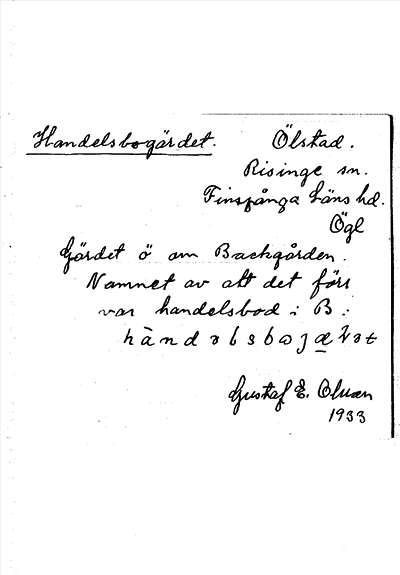 Handelsbogärdet. Ölstad.
Risinge sn.
Finspånga Läns hd.
Ögl
Gärdet ö om Backgården.
Namnet av att det förr
var handelsbod i B.:
Gustaf E. Olsson
1933